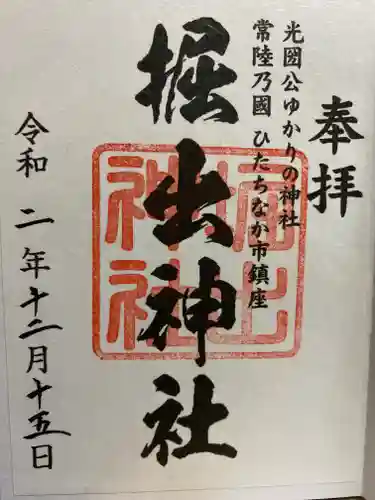 奉拝
光圀公ゆかりの神社
常陸乃國 ひたちなか市鎮座
掘出神社
堀出神社
令和二年十二月十五日